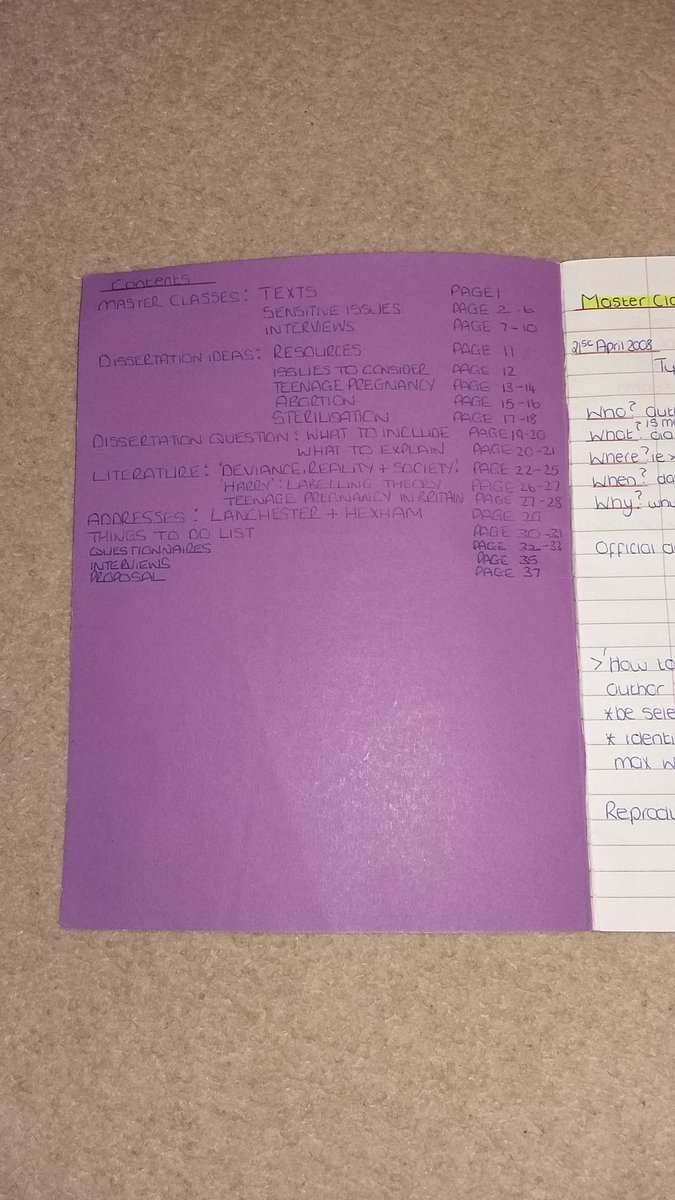 Contents
MASTER CLASSES: TEXTS PAGE 1
SENSITIVE ISSUES PAGE 2-6
INTERVIEWS PAGE 7-10
DISSERTATION IDEAS: RESOURCES PAGE 11
ISSUES TO CONSIDER PAGE 12
TEENAGE PREGNANCY PAGE 13-14
ABORTION PAGE 15-16
STERILISATION PAGE 17-18
DISSERTATION QUESTION: WHAT TO INCLUDE PAGE 19-20
WHAT TO EXPLAIN PAGE 20-21
LITERATURE: 'DEVIANCE, REALITY + SOCIETY' PAGE 22-25
HARRY': LABELLING THEORY PAGE 26-27
TEENAGE PREGNANCY IN BRITAIN PAGE 27-28
ADDRESSES: LANCHESTER + HEXHAM PAGE 29
THINGS TO DO LIST PAGE 30-31
QUESTIONNAIRES PAGE 32-33
INTERVIEWS PAGE 35
PROPOSAL PAGE 37
Master Cla
21st April 2008
Ty
Who? auth
What? is m
Where? ie >
When? da
Why? wh
Official d
>'How to
author
*be sele
* identi
max w
Reprodu